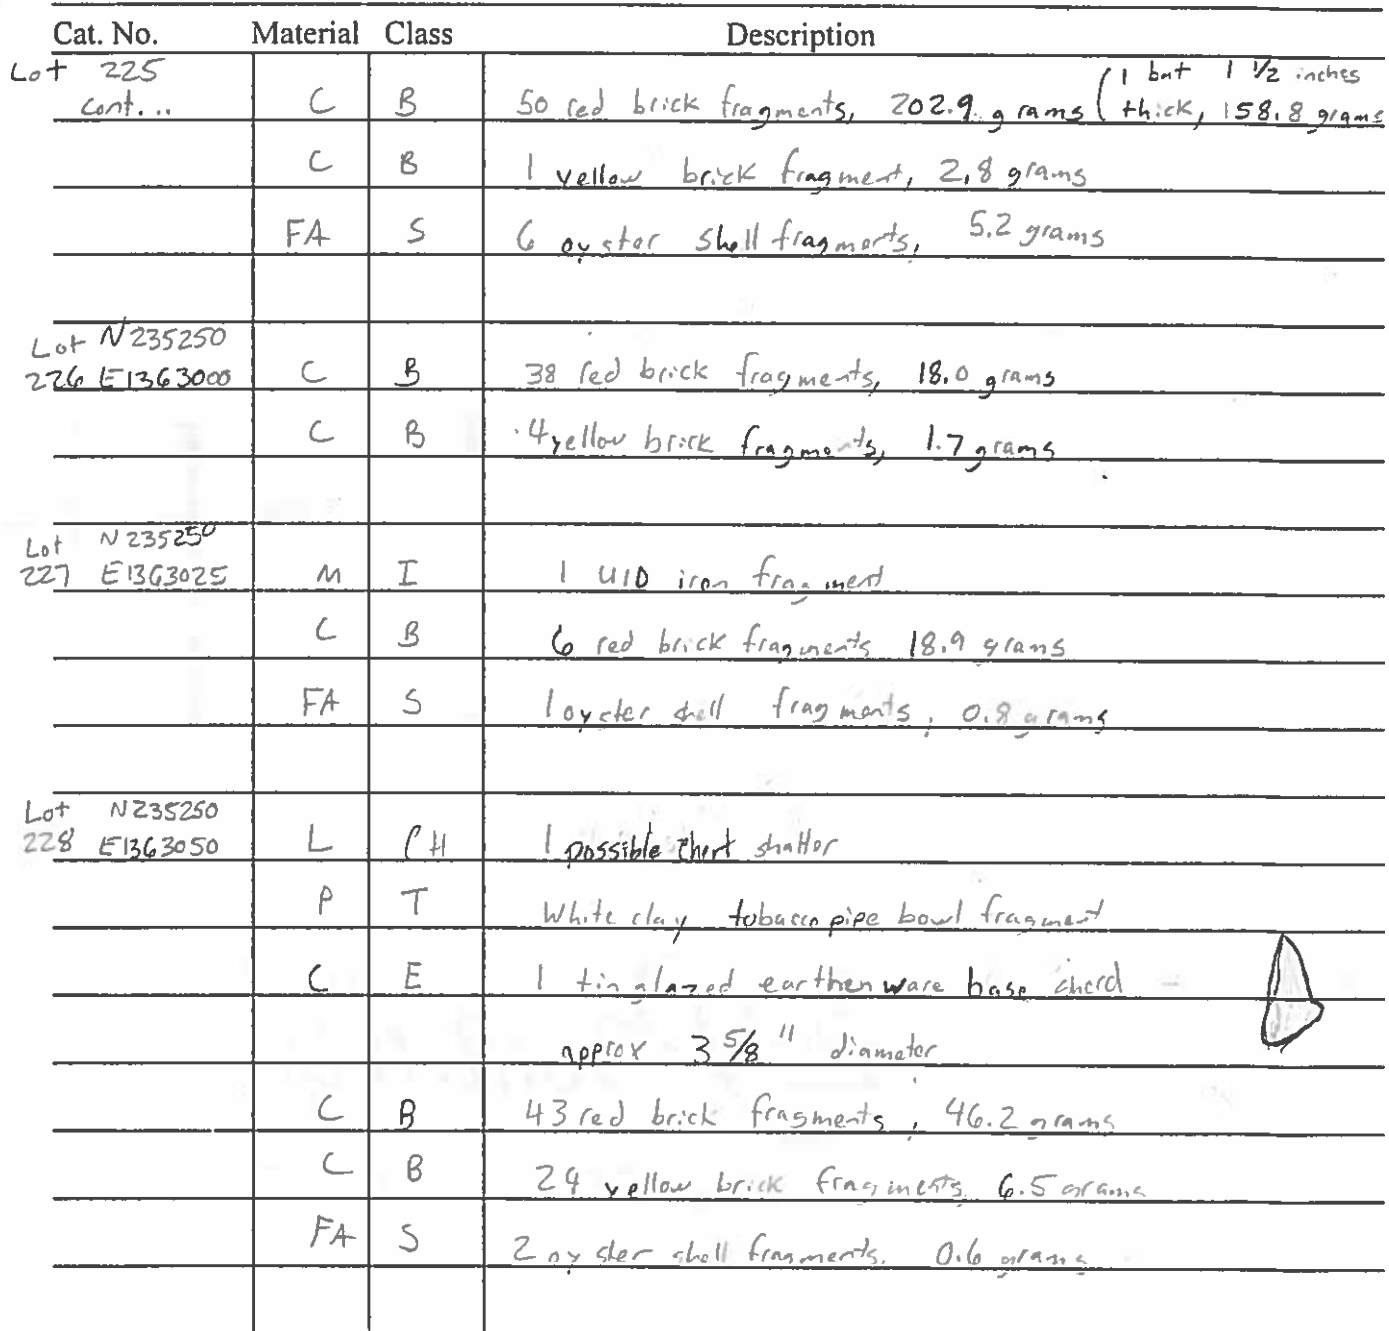 Cat. No. Material Class Description
Lot 225 (1 bat 1 1/2 inches
cont... C B 50 red brick fragments, 202.9 grams thick, 158.8 grams
C B 1 yellow brick fragment, 2.8 grams
FA S 6 oyster shell fragments, 5.2 grams
Lot N235250
226 E1363000 C B 38 red brick fragments, 18.0 grams
C B 4 yellow brick fragments, 1.7 grams
Lot N235250
227 E1363025 M I 1 UID iron fragment
C B 6 red brick fragments 18.9 grams
FA S 1 oyster shell fragments, 0.8 grams
Lot N235250
228 E1363050 L CH 1 possible chert shatter
P T White clay tobacco pipe bowl fragment
C E 1 tin glazed earthenware base sherd
approx 3 5/8 " diameter
C B 43 red brick fragments, 46.2 grams
C B 24 yellow brick fragments, 6.5 grams
FA S 2 oyster shell fragments. 0.6 grams